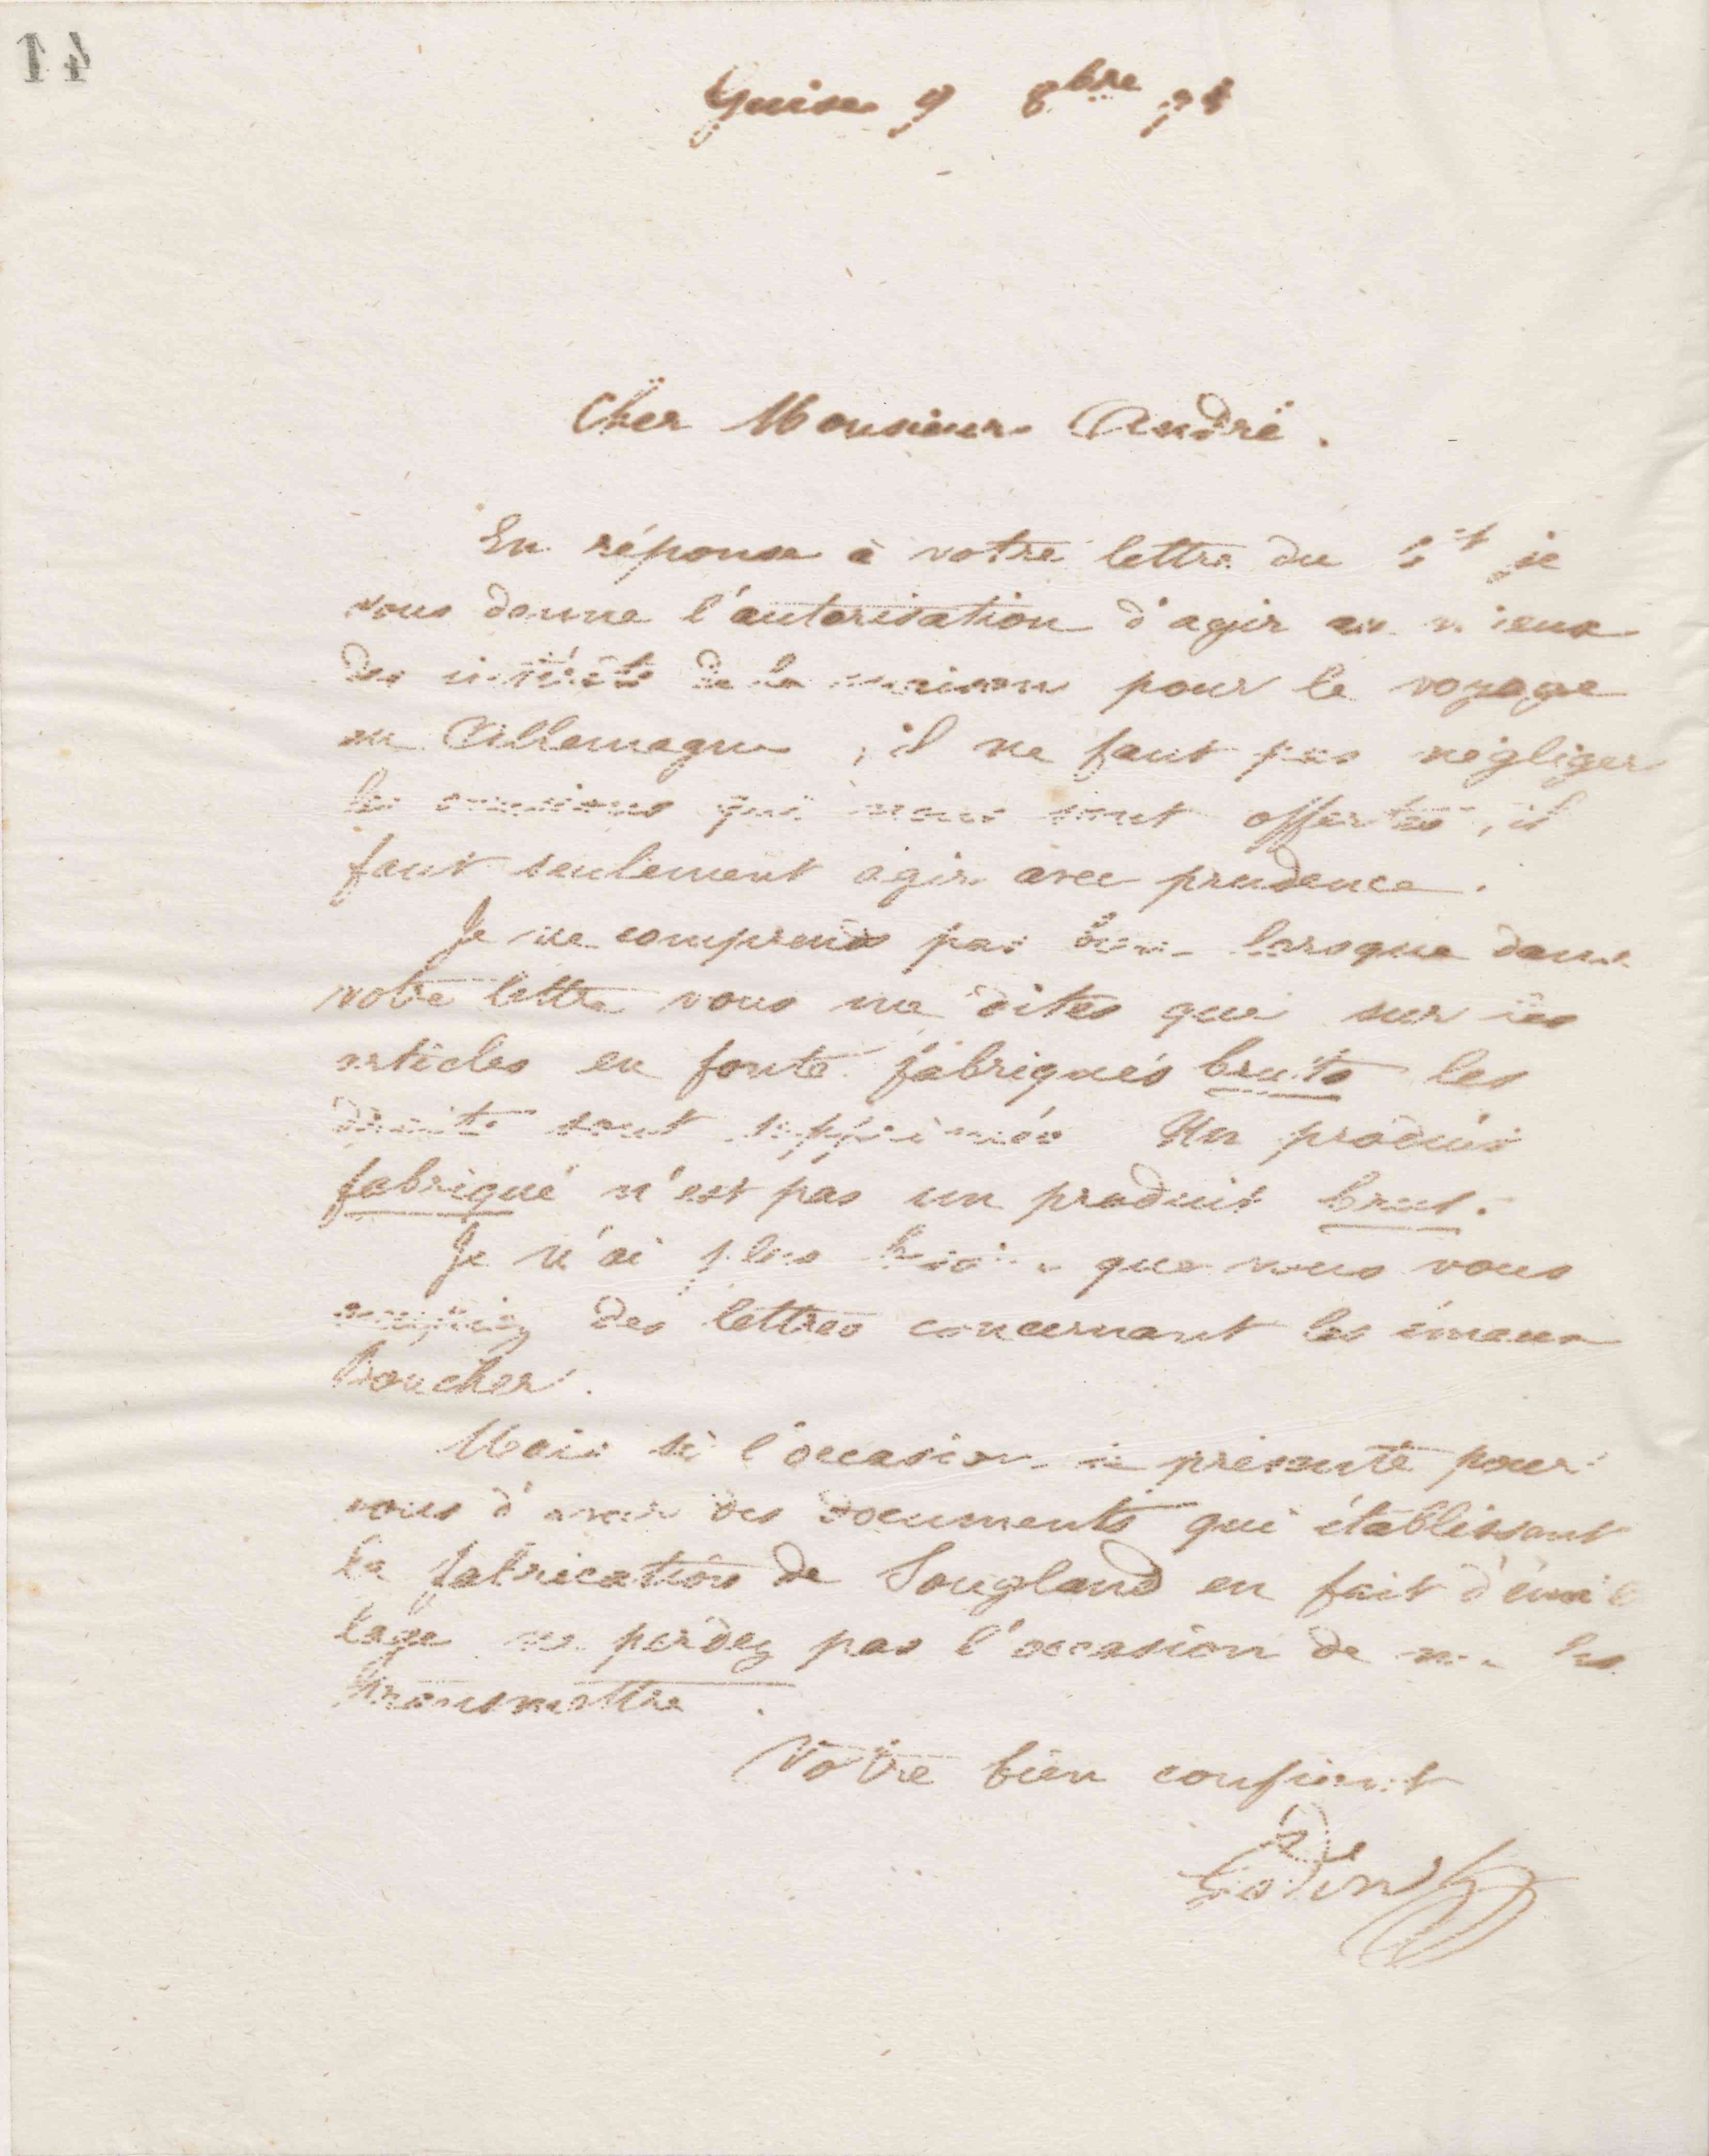 14
Guise 9 8bre 71
Cher Monsieur André.
En réponse à votre lettre du ct je
vous donne l'autorisation d'agir au mieux
des intérêts de la maison pour le voyage
en Allemagne, il ne faut pas négliger
les occasions qui nous sont offertes, il
faut seulement agir avec prudence.
Je ne comprends pas bien lorsque dans
votre lettre vous me dites que sur les
articles en fonte fabriqués bruts les
droits sont supprimés Un produit
fabriqué n'est pas un produit brut.
Je n'ai plus besoin que vous vous
des lettres concernant les émaux
Boucher.
Mais si l'occasion se présente pour
vous d'avoir des documents qui établissent
la fabrication de Sougland en fait d'émail
lage ne perdez pas l'occasion de me les
transmettre.
Votre bien confiant
Godin